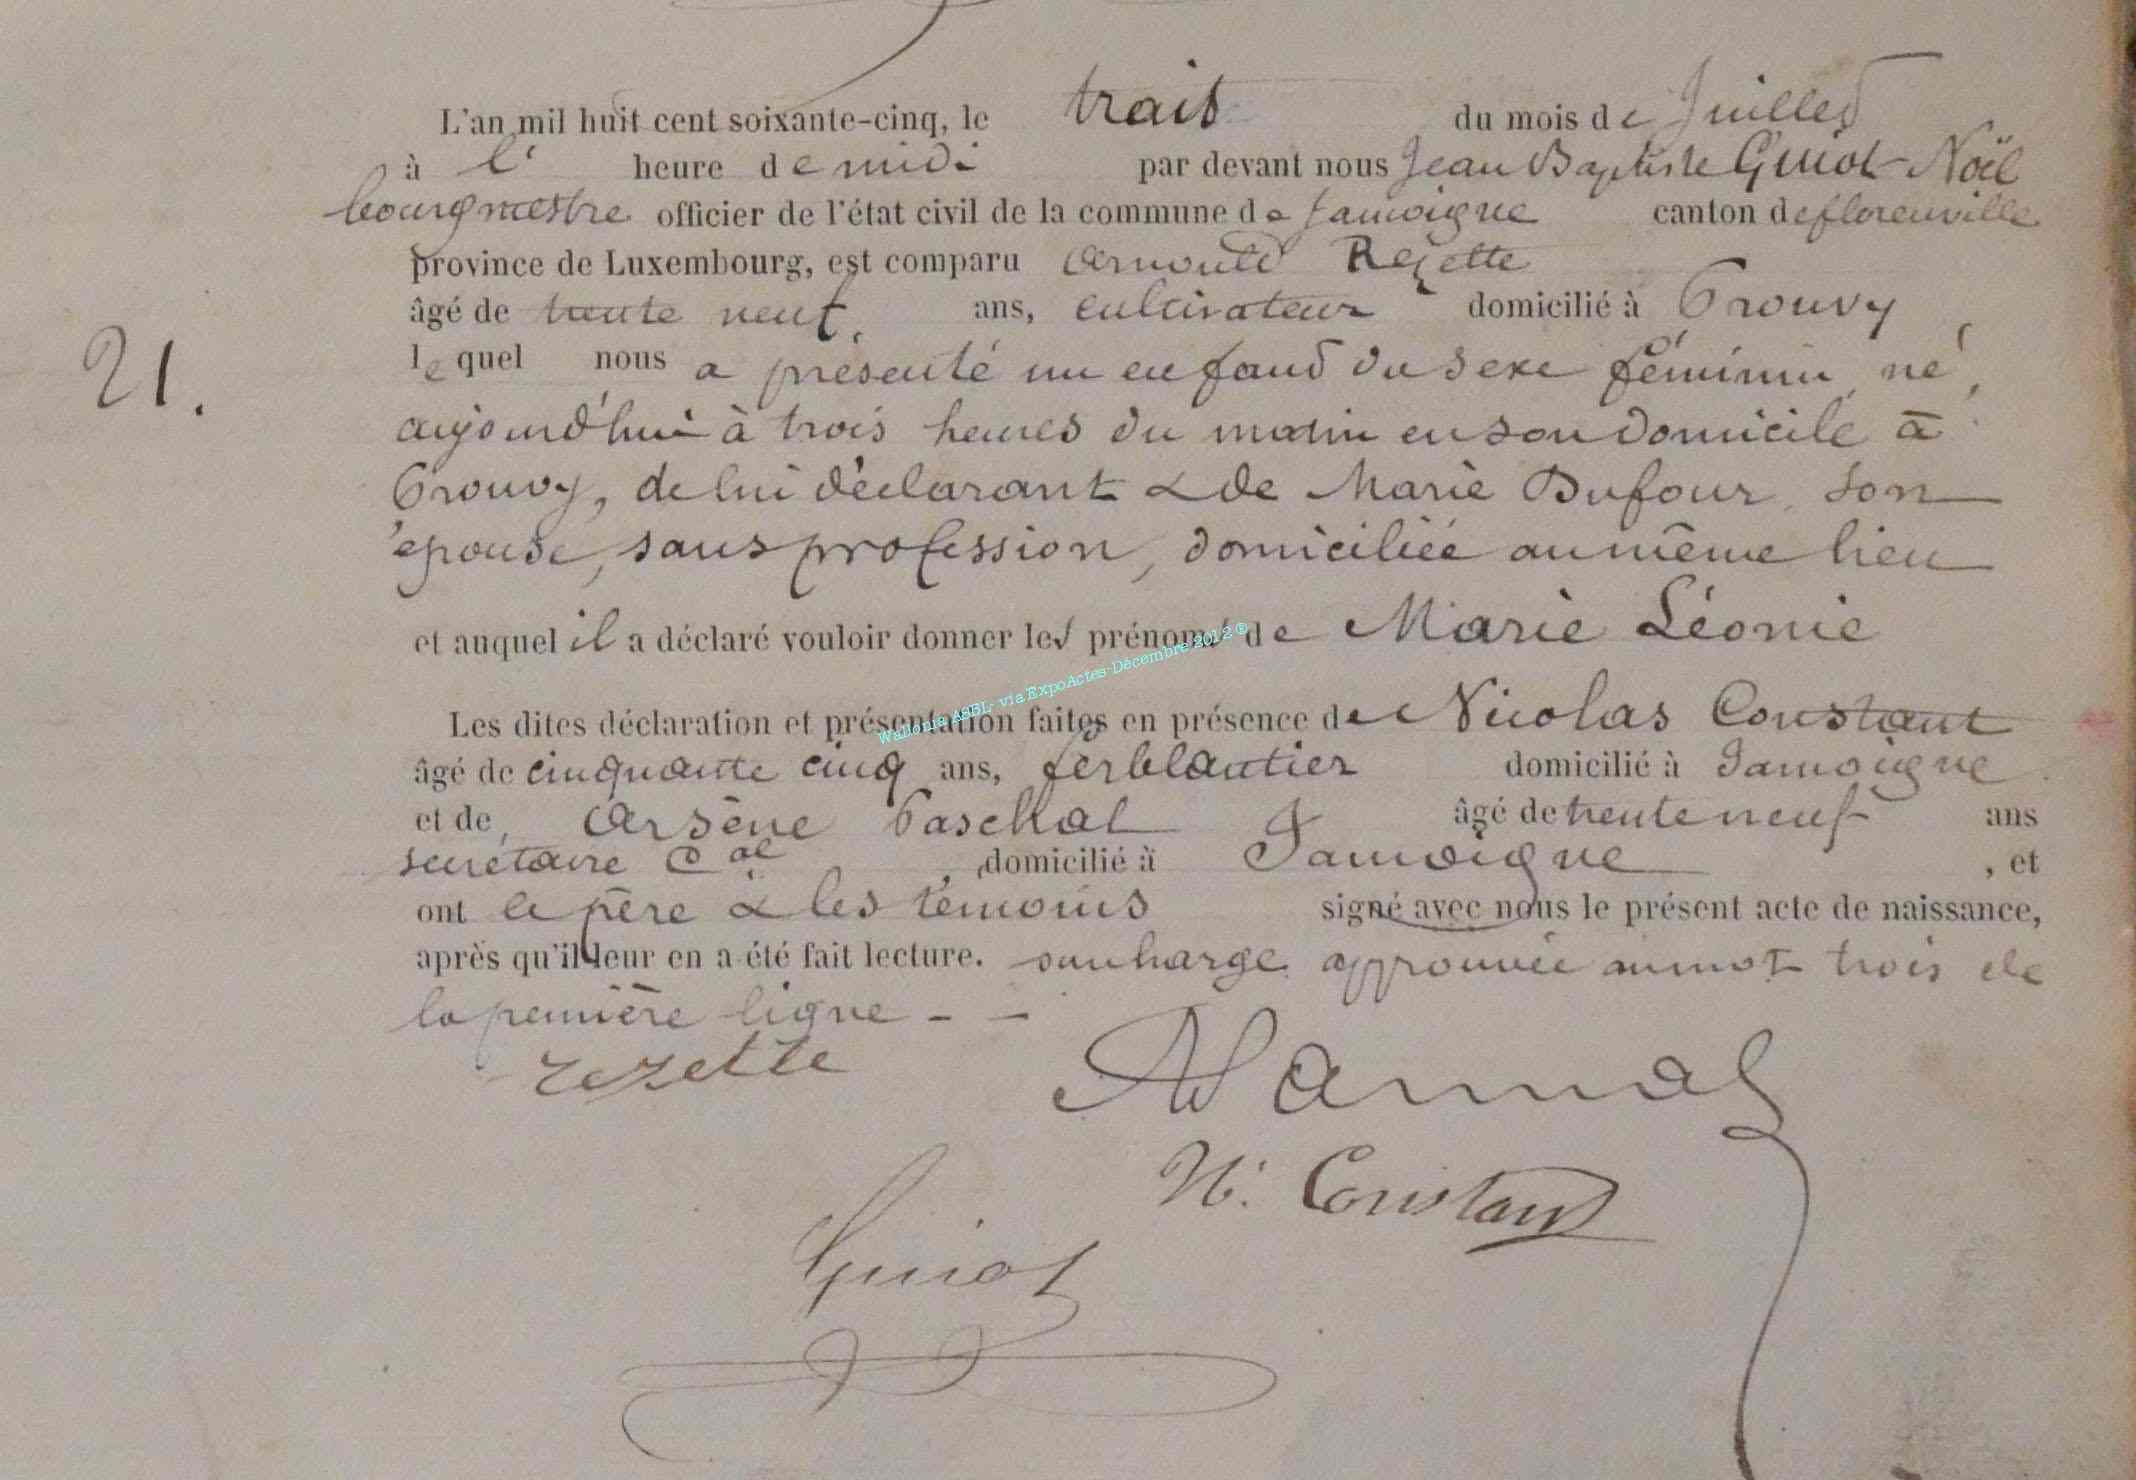 L'an mil huit cent soixante-cinq, le trois du mois de Juillet
à l' heure de midi par devant nous Jean Baptiste Guiot-Noël
bourgmestre officier de l'état civil de la commune de Jamoigne canton de florenville
province de Luxembourg, est comparu Arnould Rezette
âgé de trente neuf, ans, cultivateur domicilié à Prouvy
21.
lequel nous a présenté un enfant du sexe féminin, né,
aujourd'hui à trois heures du matin en son domicile à
Prouvy, de lui déclarant & de Marie Dufour, son
épouse, sans profession, domiciliée au même lieu
et auquel il a déclaré vouloir donner les prénoms de Marie Léonie
Wallonia ASBL- via ExpoActes-Décembre 2012 ®
Les dites déclaration et présentation faites en présence de Nicolas Constant
âgé de cinquante cinq ans, ferblantier domicilié à Jamoigne
et de Arsène Paschal âgé de trente neuf ans
secrétaire Cal, domicilié à Jamoigne, et
ont le père & les témoins signé avec nous le présent acte de naissance,
après qu'il leur en a été fait lecture. surcharge approuvée au mot trois de
la première ligne - -
rezette
N. Constant
Guiot